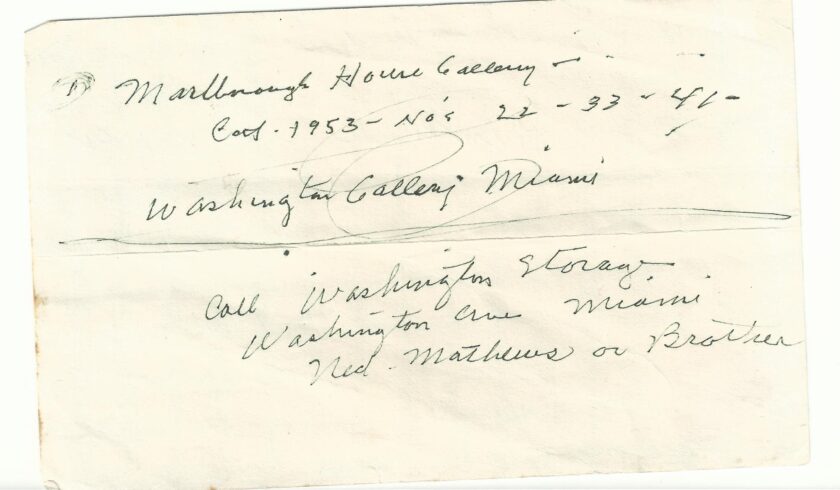 Marlborough House Gallery -
Cat. 1953 - No's 22 - 33 - 41 -
Washington Gallery Miami
Call Washington Storage
Washington Ave Miami
Ned Mathews or Brother